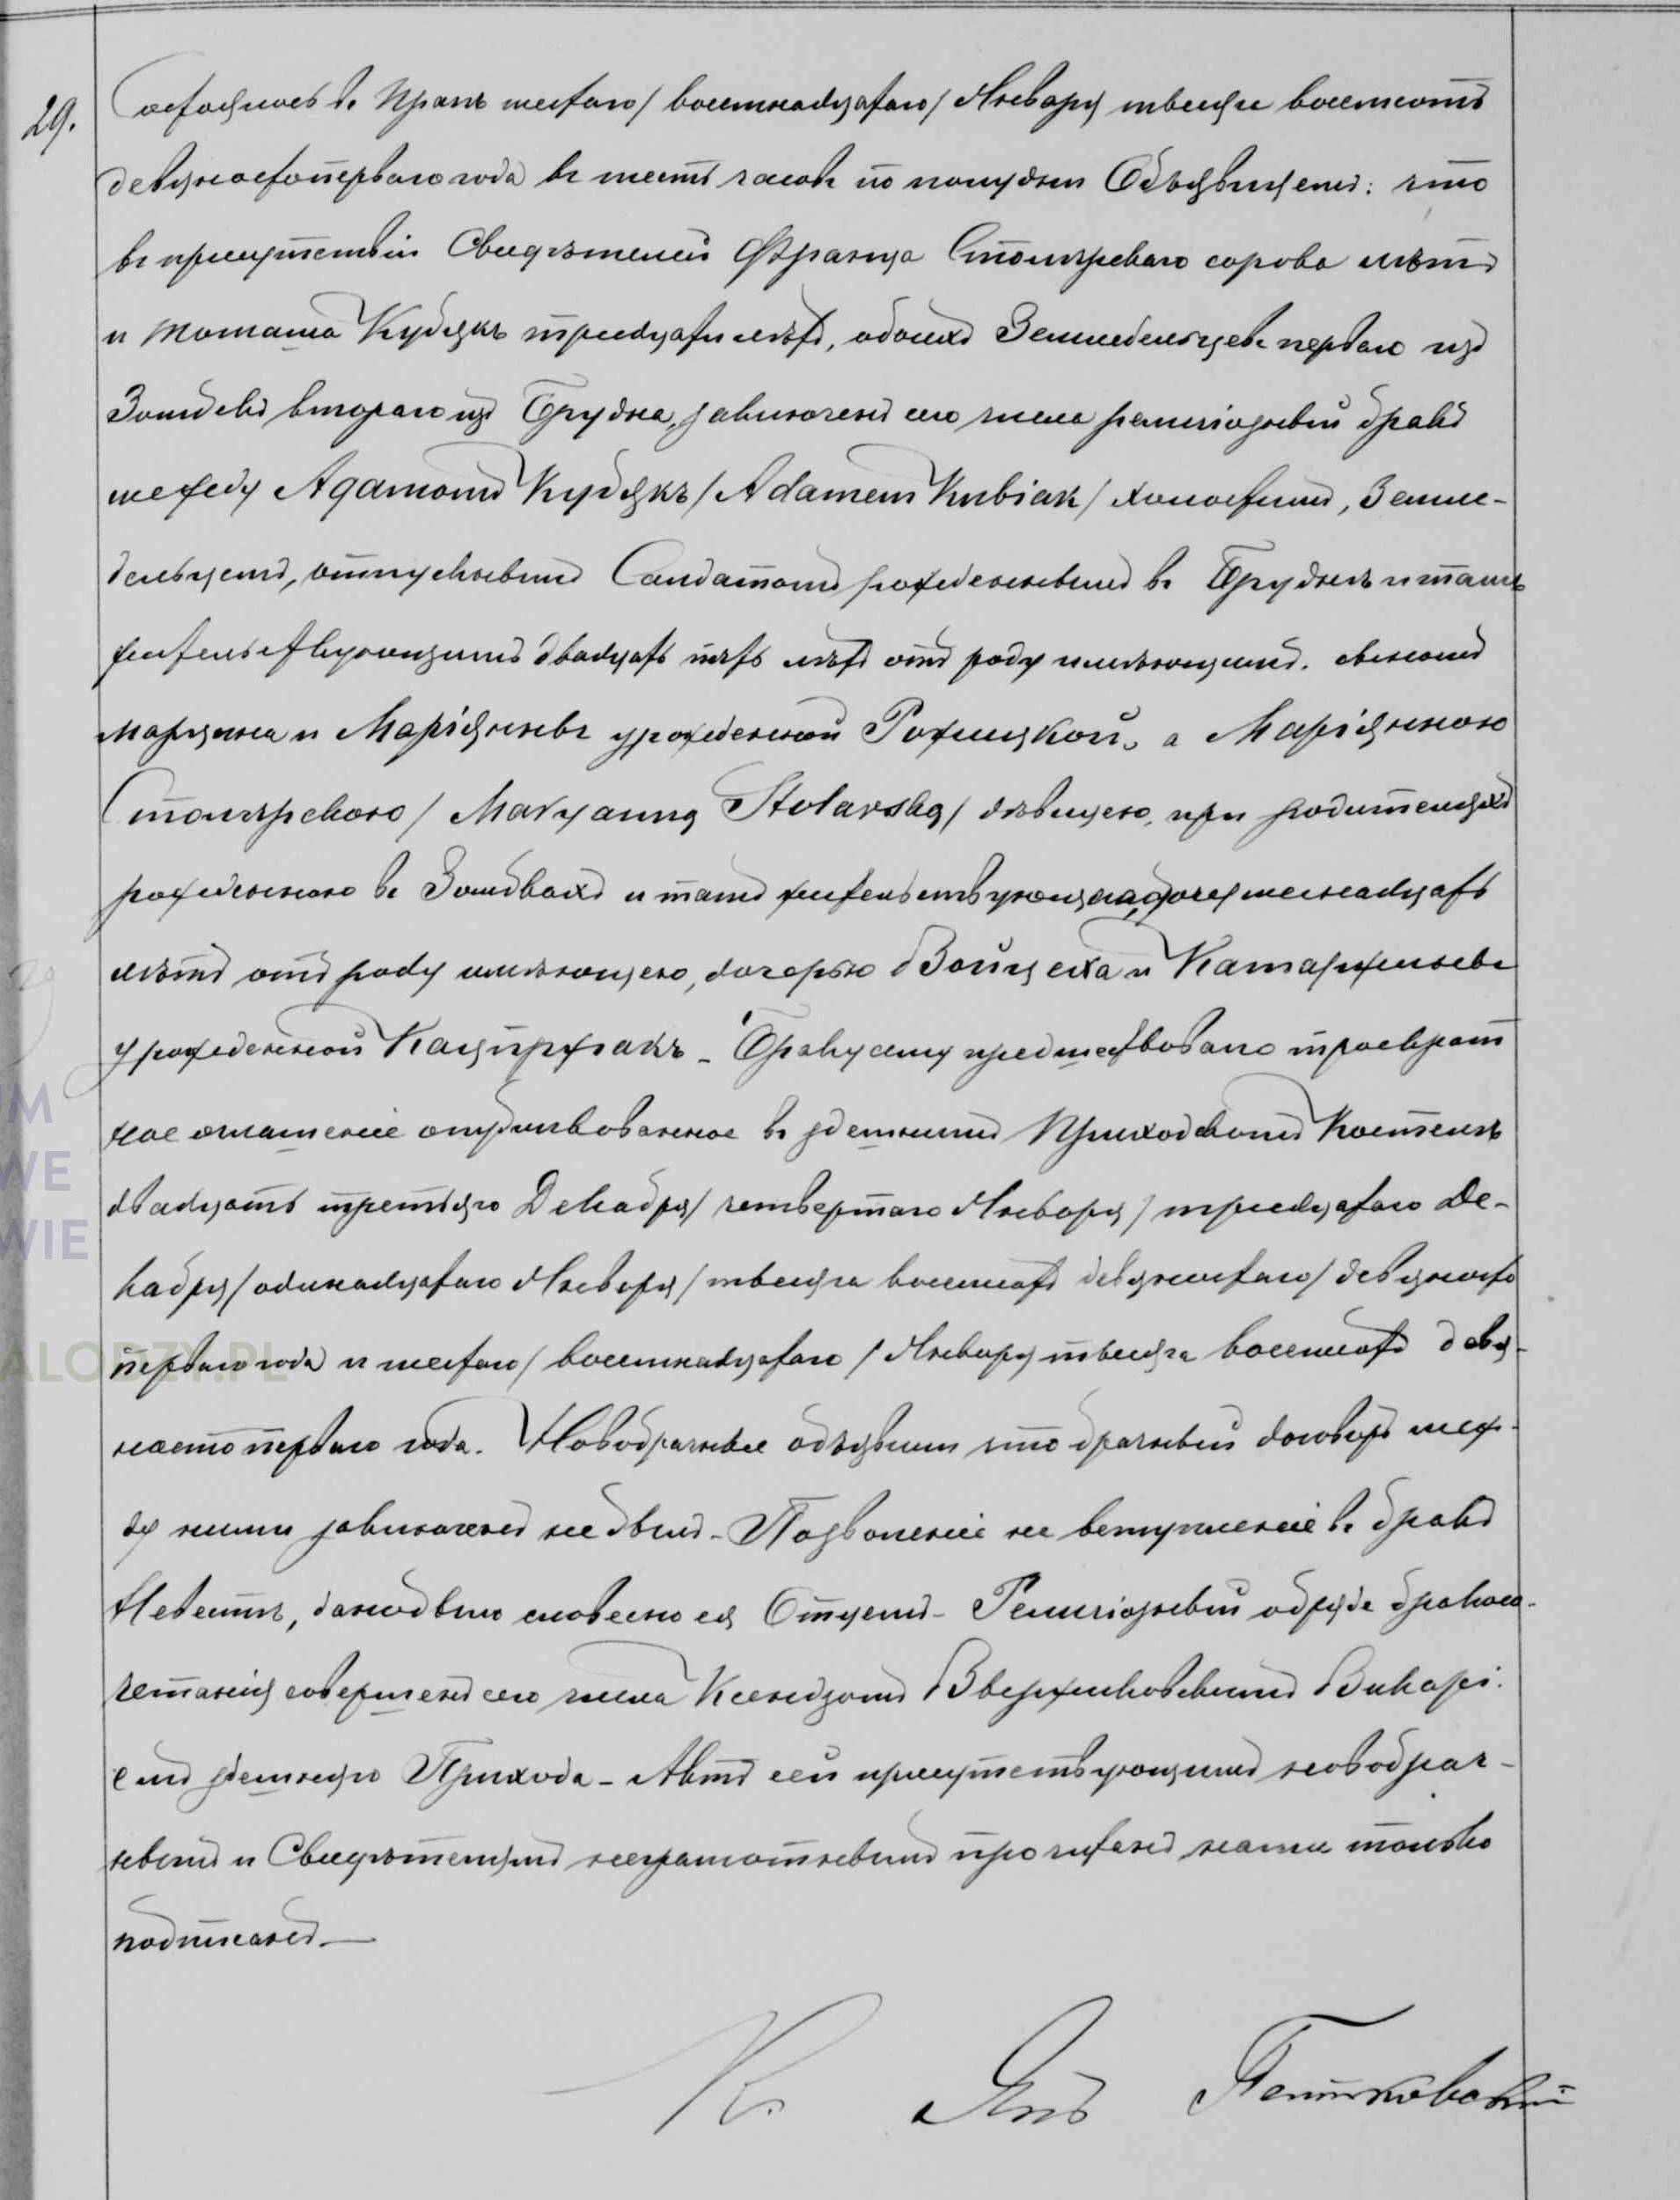 29.
Состоялось въ Иразъ шестаго / восемнадцатаго / Января тысяча восемсотъ
девяностопервого года въ шесть часовъ по полудни Объявляемъ: что
въ присутствіи Свидѣтелей Франца Столярскаго сорока лѣтъ
и Томаша Кубякъ тридцати лѣтъ, обоихъ Земледельцевъ перваго изъ
втораго изъ Грудна, заключенъ сего числа религіозный бракъ
между Адамомъ Кубякъ / Adamem Kubiak / холостымъ, Земле-
дельцемъ, отпускнымъ Солдатомъ рожденнымъ въ Груднѣ и тамъ
жительствующимъ двадцать пять лѣтъ отъ роду имѣющимъ, сыномъ
Марцина и Маріянны урожденной а Маріянною
Столярскою / Maryanną Stolarską / дѣвицею, при родителяхъ
рожденною въ и тамъ жительствующею,
лѣтъ отъ роду имѣющею, дочерью Войцеха и Катаржины
урожденной Кацпржакъ - Браку сему предшествовало троекрат
ное оглашеніе опубликованное въ здешнимъ Приходскомъ Костелѣ
двадцать третьяго Декабря / четвертаго Января / тридцатаго Де-
кабря / одинадцатаго Января / тысяча восемсотъ девяностаго / девяносто
перваго года и шестаго / восемнадцатаго / Января тысяча восемсотъ девя-
носто перваго года. Новобрачные объявили что брачный договоръ меж-
ду ними заключенъ не былъ - Позволеніе на вступленіе въ бракъ
Невестѣ, дано было словесно ея Отцемъ - Религіозный обрядъ бракосо-
четанія совершенъ сего числа Ксендзомъ Викарі.
емъ здешняго Прихода - Актъ сей присутствующимъ новобрач-
нымъ и Свидѣтелямъ неграмотнымъ прочитанъ нами только
подписанъ. —
К. Янъ